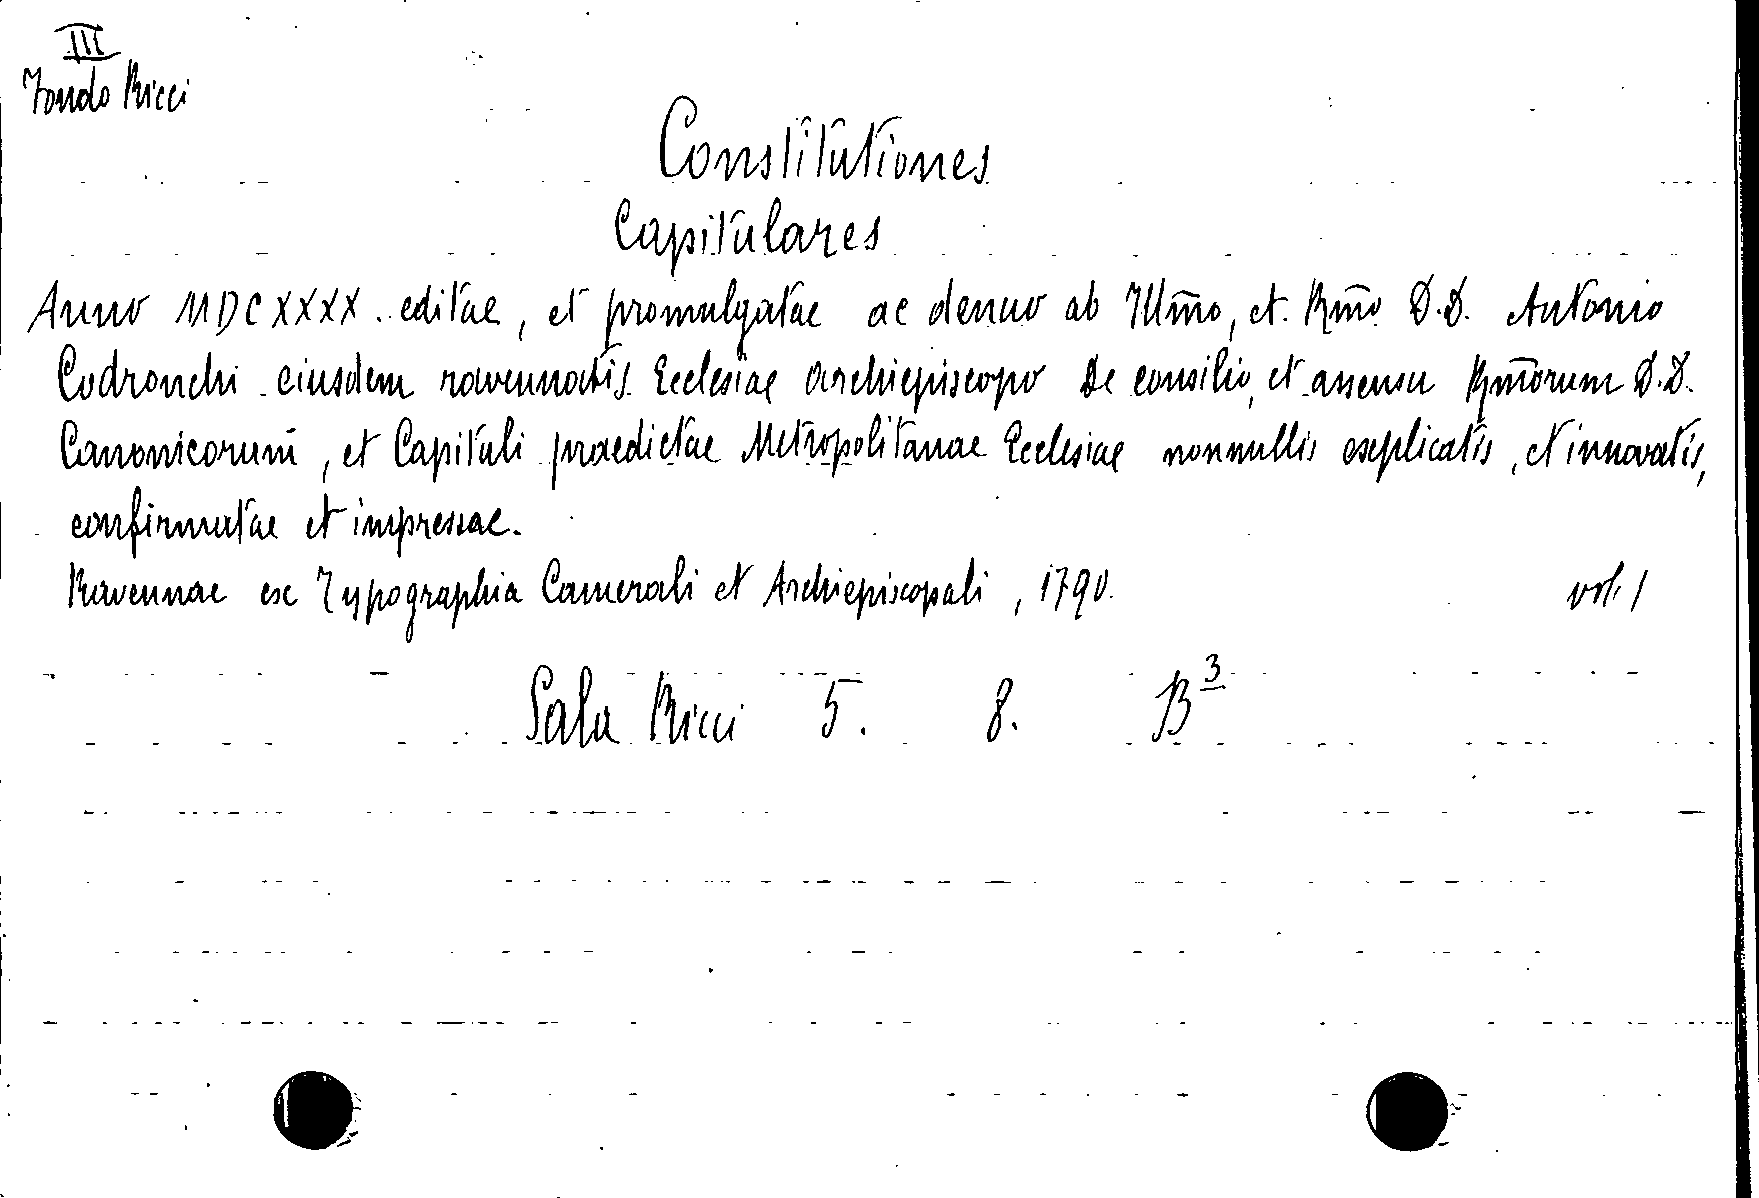 III
Fondo Ricci
Constitutiones
Capitulares
Anno MDCXXXX. editae, et promulgatae ac denuo ab Illm̃o, et Rm̃o D.D. Antonio
Codronchi eiusdem ravennatis Ecclesiae Archiepiscopo De consilio, et assensu Rmõrum D.D.
Canonicorum, et Capituli praedictae Metropolitanae Ecclesiae nonnullis explicatis, et innovatis,
confirmatae et impressae.
Ravennae ex Typographia Camerali et Archiepiscopali, 1790. vol. 1
Sala Ricci 5. 8. B³